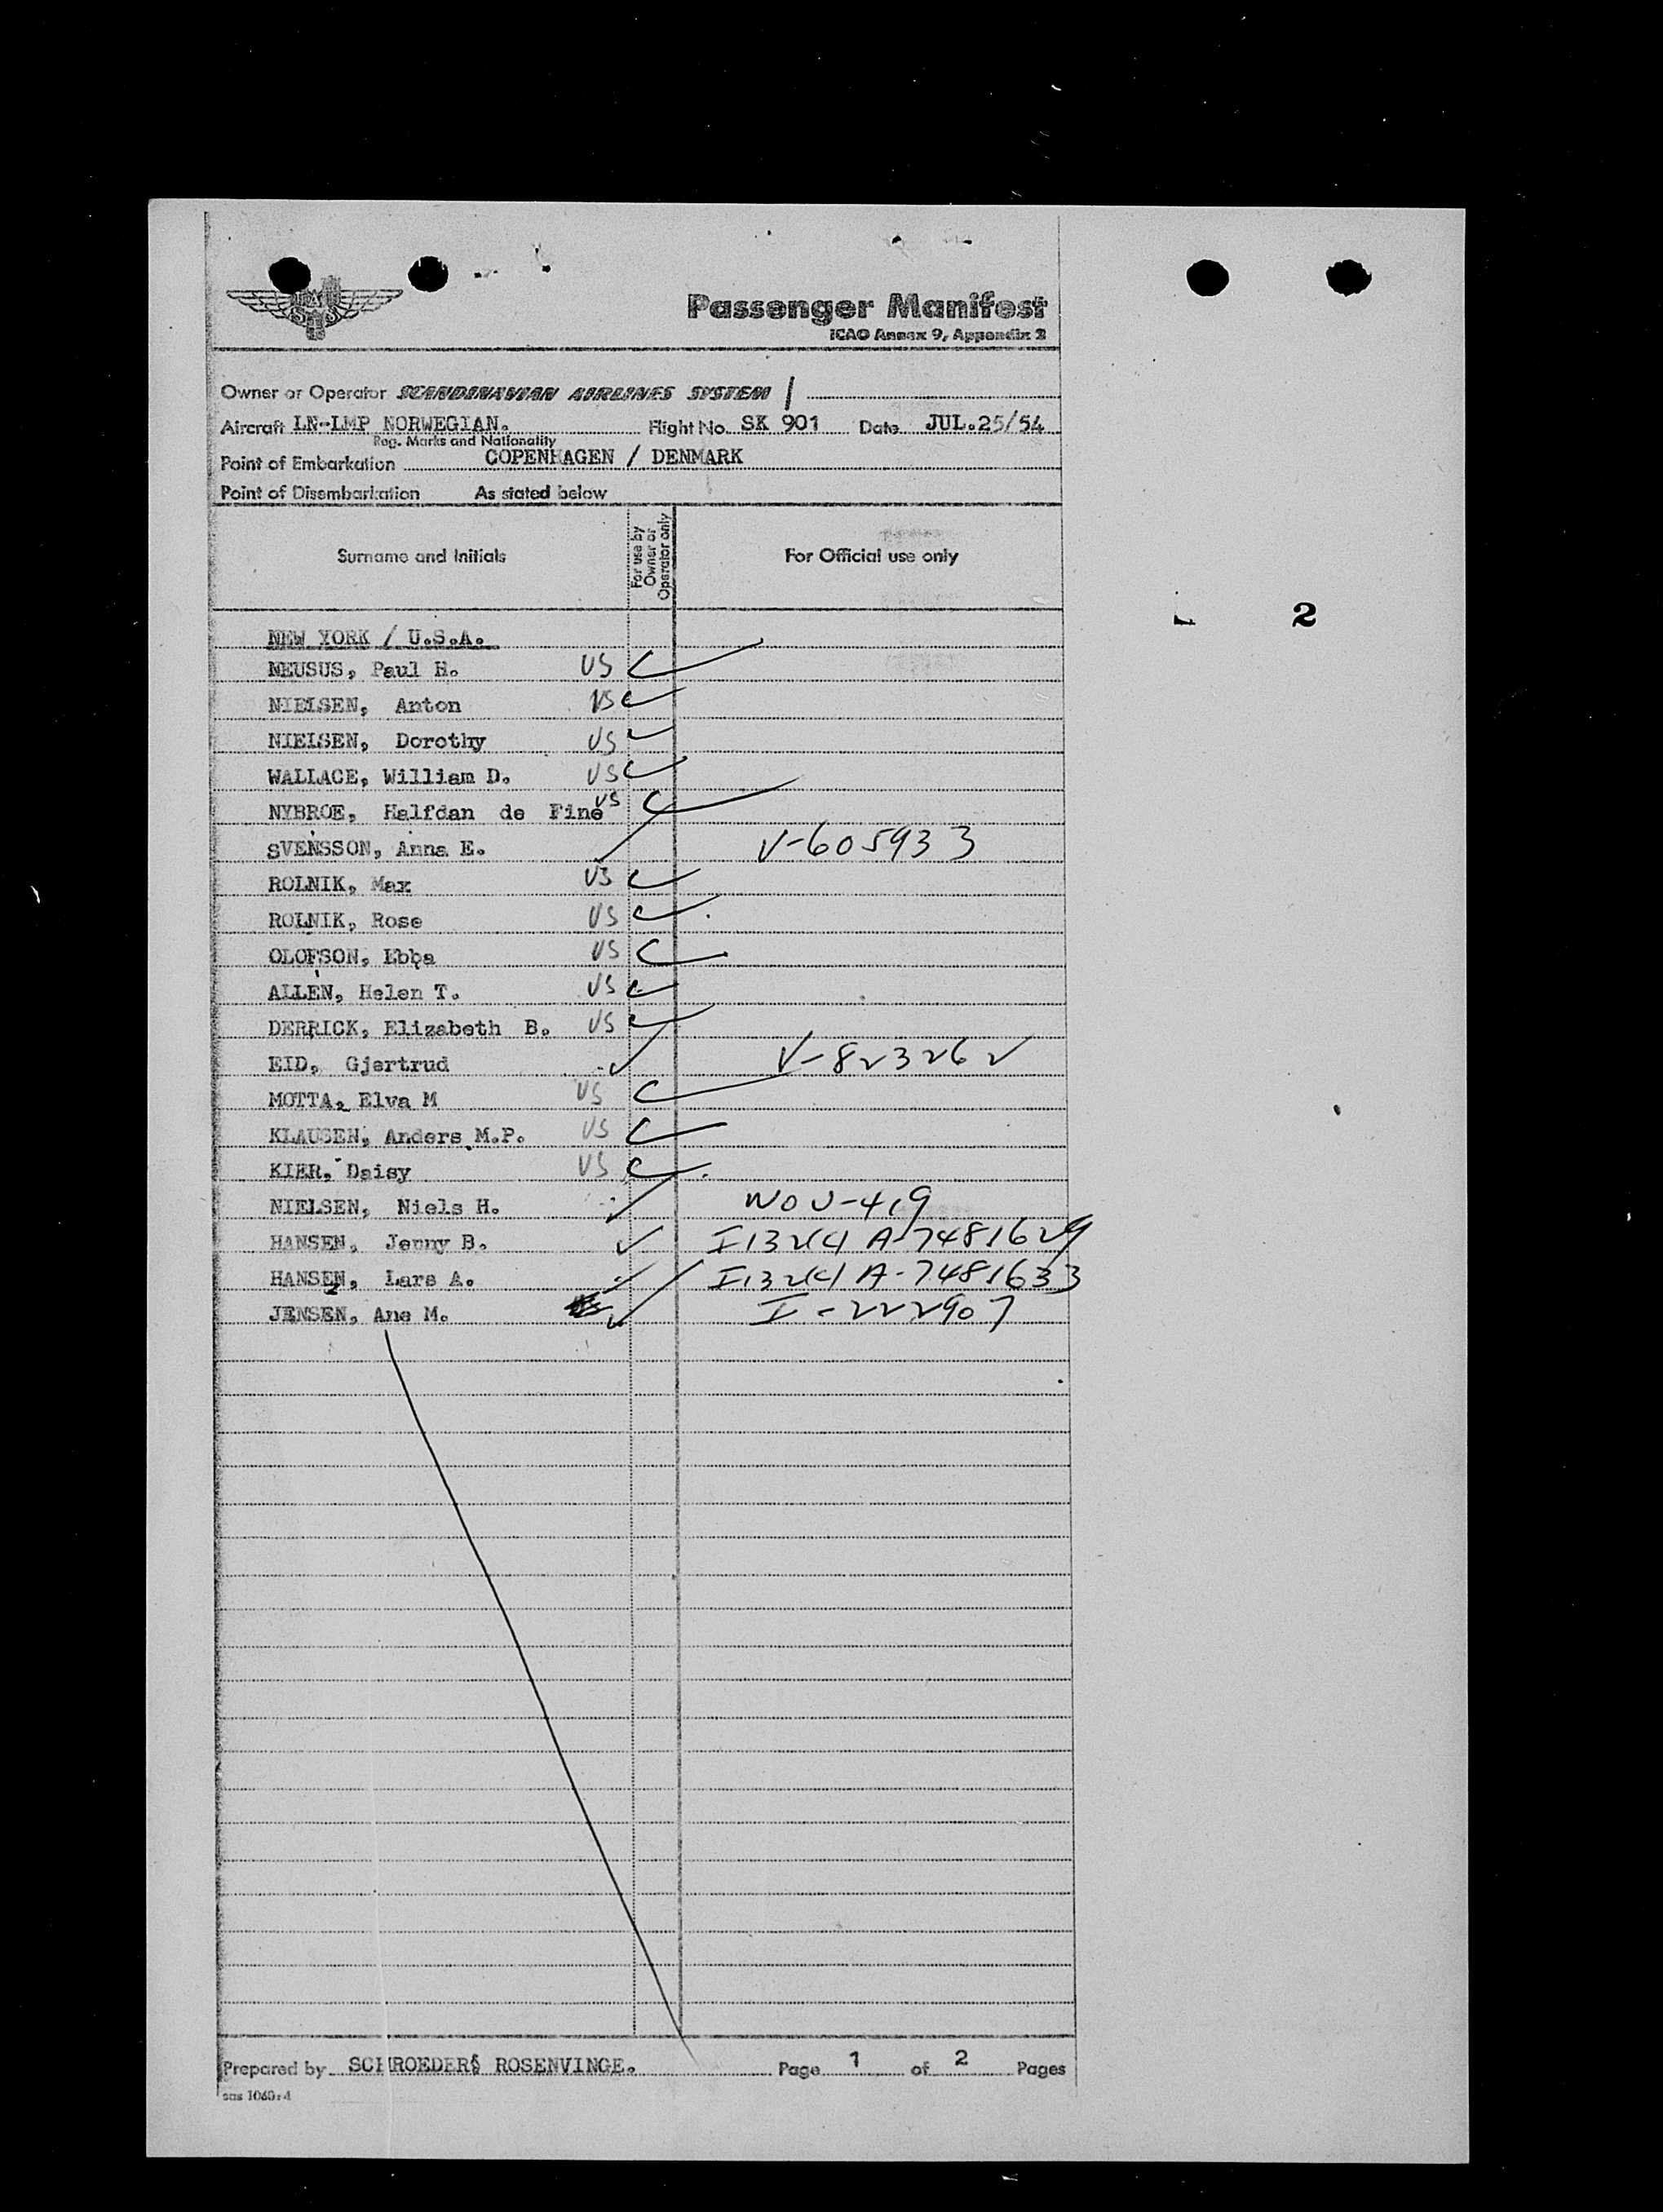 SAS
Passenger Manifest
ICAO Annex 9, Appendix 2
Owner or Operator SCANDINAVIAN AIRLINES SYSTEM
Aircraft LN-LMP NORWEGIAN. Flight No. SK 901 Date JUL.25/54
Reg. Marks and Nationality
Point of Embarkation COPENHAGEN / DENMARK
Point of Disembarkation As stated below
Surname and Initials For use by Owner or Operator only For Official use only
2
NEW YORK / U.S.A.
NEUSUS, Paul H. US
NIELSEN, Anton US
NIELSEN, Dorothy US
WALLACE, William D. US
NYBROE, Halfdan de Fine US
SVENSSON, Anna E. V-605933
ROLNIK, Max US
ROLNIK, Rose US
OLOFSON, Ebba US
ALLEN, Helen T. US
DERRICK, Elizabeth B. US
EID, Gjertrud V-823262
MOTTA, Elva M US
KLAUSEN, Anders M.P. US
KIER, Daisy US
NIELSEN, Niels H. NOV-419
HANSEN, Jenny B. I132(c) A-7481629
HANSEN, Lars A. I132(c) A-7481633
JENSEN, Ane M. I-222907
Prepared by SCHROEDER& ROSENVINGE. Page 1 of 2 Pages
sas 1060:4